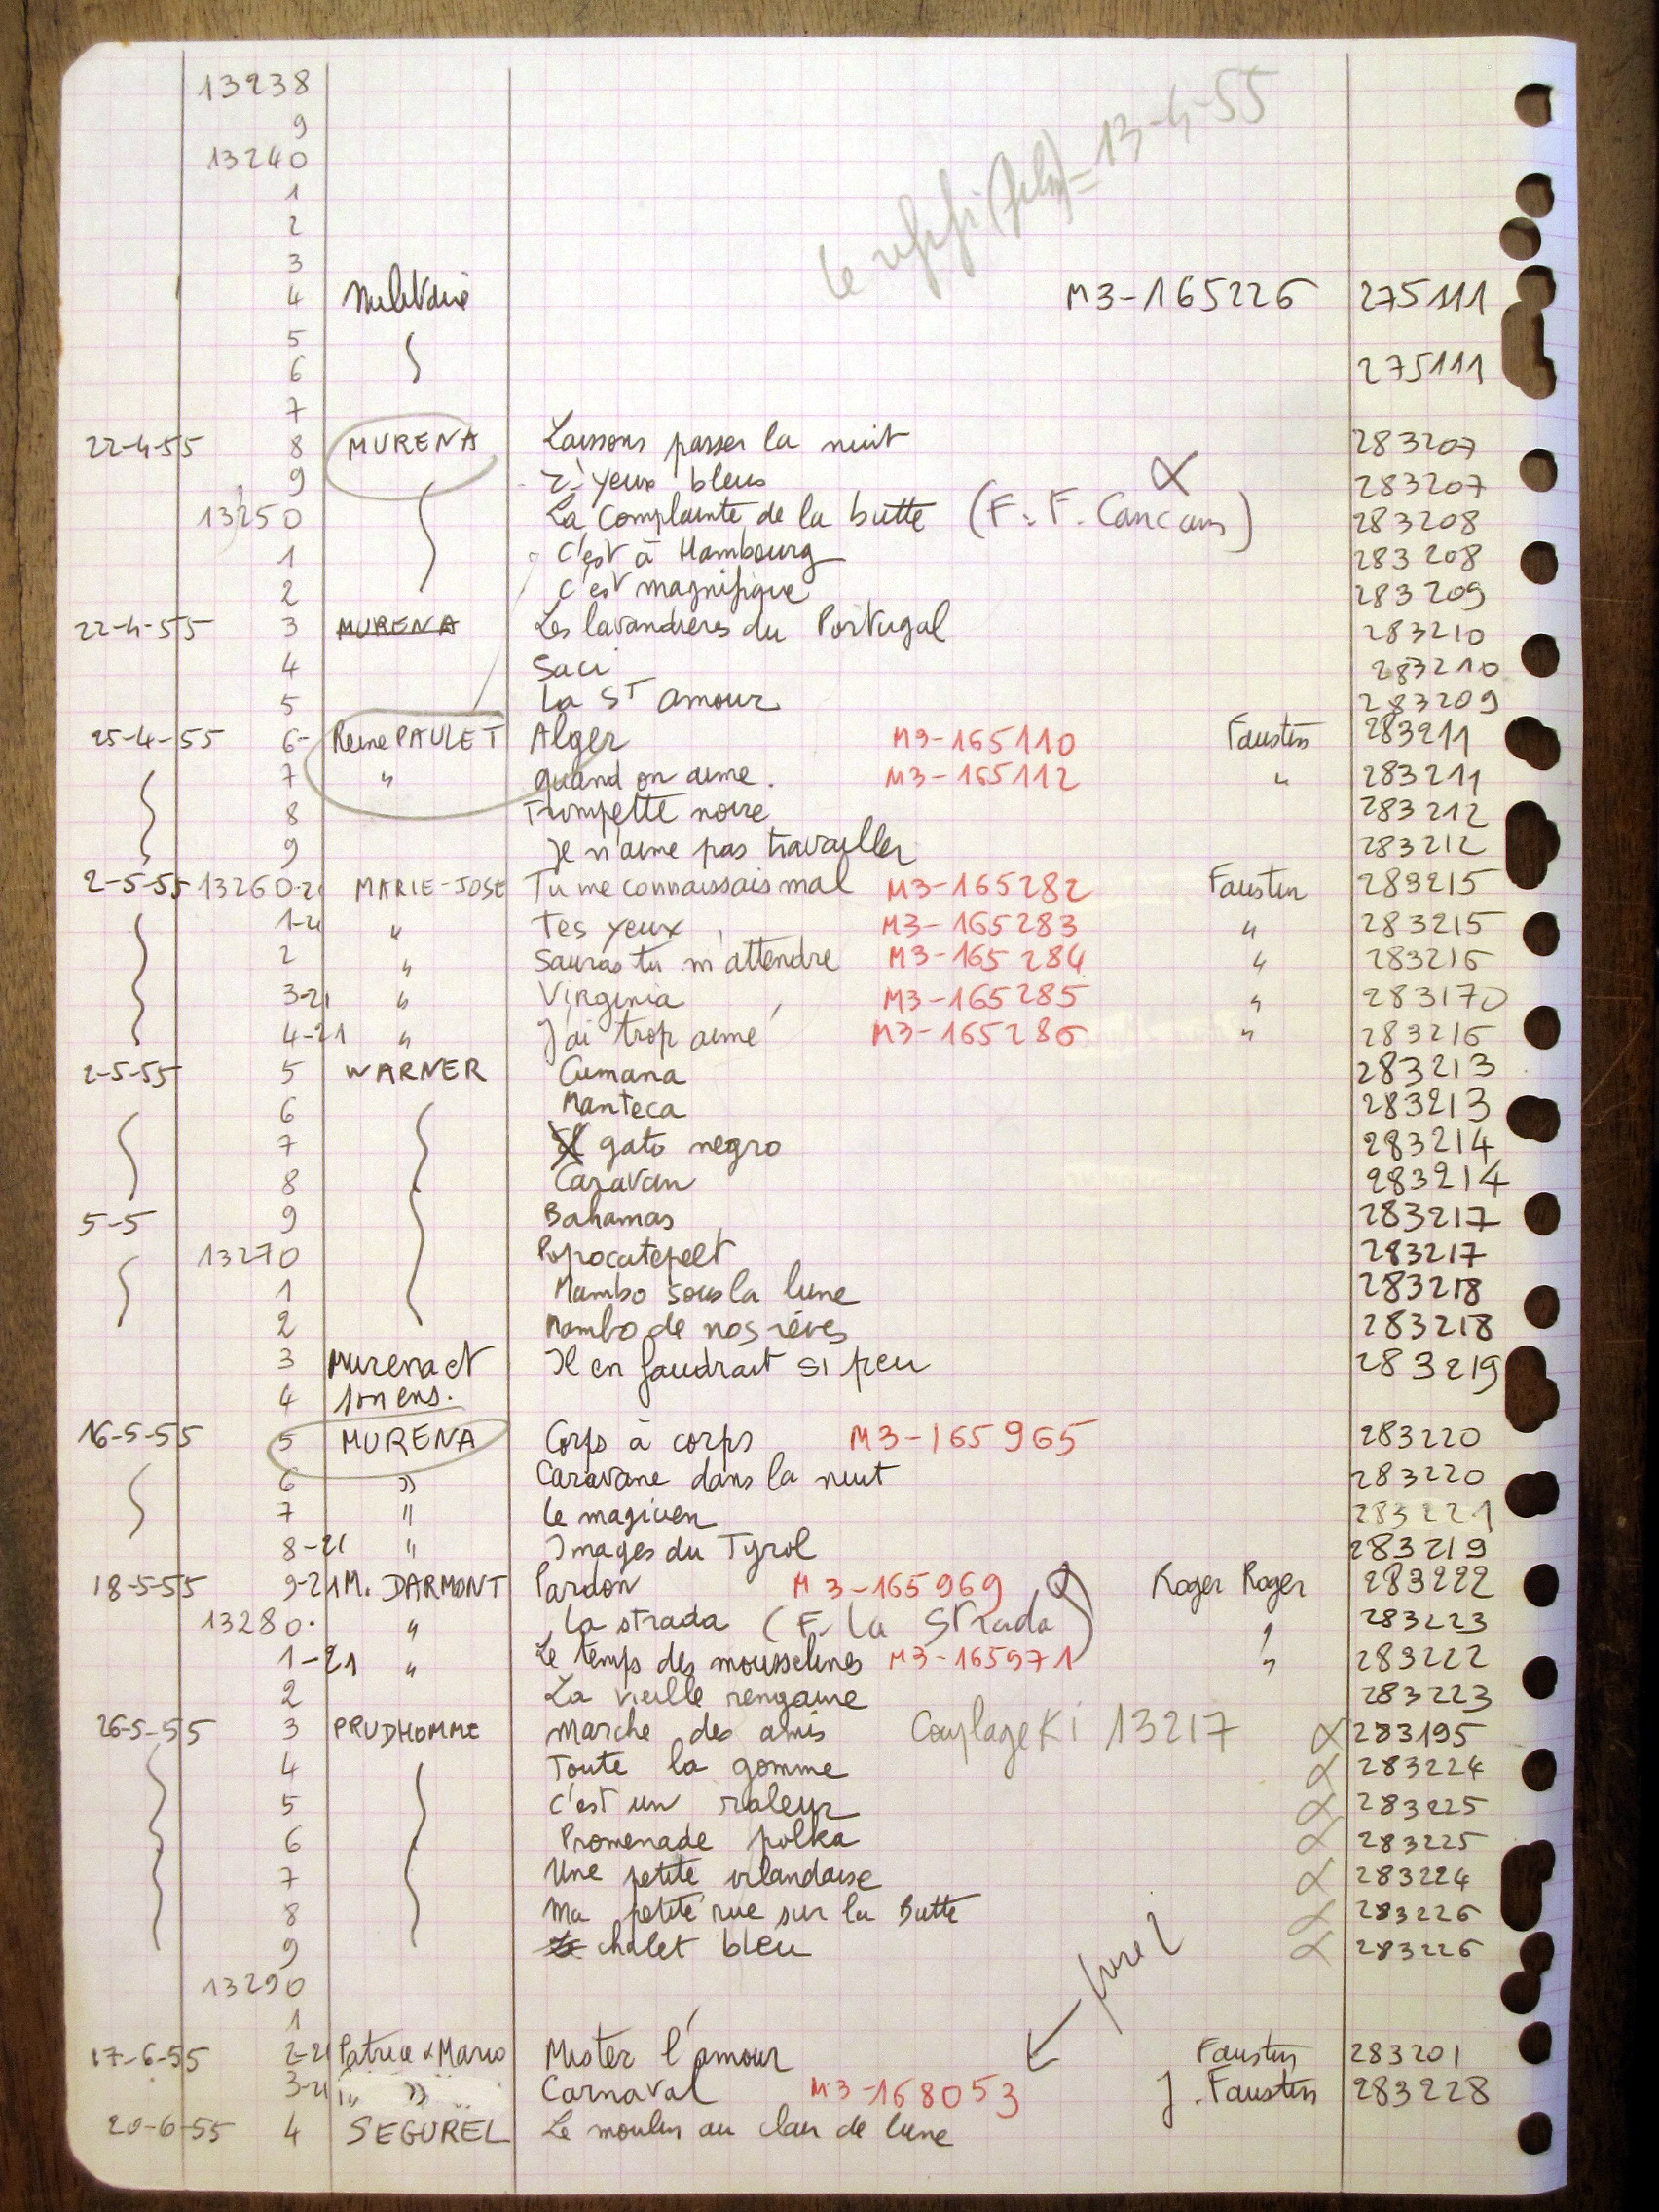 13238
9
13240
1
2
3
le (film) = 13-4-55
4 M3-165226 275111
5
6 275111
7
22-4-55 8 MURENA Laissons passer la nuit 283207
9 z'yeux bleus α 283207
13250 La complainte de la butte (F. F. Cancan) 283208
1 C'est à Hambourg 283208
2 C'est magnifique 283209
22-4-55 3 MURENA Les lavandières du Portugal 283210
4 Saci 283210
5 La St amour 283209
25-4-55 6- Reine PAULET Alger M3-165110 Faustin 283211
7 " quand on aime. M3-165112 " 283211
8 Trompette noire 283212
9 Je n'aime pas travailler 283212
2-5-55 13260-21 MARIE-JOSE Tu me connaissais mal M3-165282 Faustin 283215
1-21 " Tes yeux M3-165283 " 283215
2 " Sauras tu m'attendre M3-165284 " 283216
3-21 " Virginia M3-165285 " 283170
4-21 " J'ai trop aimé M3-165286 " 283216
2-5-55 5 WARNER Cumana 283213
6 Manteca 283213
7 gato negro 283214
8 Caravan 283214
5-5 9 Bahamas 283217
13270 Popocatepelt 283217
1 Mambo sous la lune 283218
2 Mambo de nos rêves 283218
3 Murena et Il en faudrait si peu 283219
4 son ens.
16-5-55 5 MURENA Corps à corps M3-165965 283220
6 " Caravane dans la nuit 283220
7 " Le magicien 283221
8-21 " Images du Tyrol 283219
18-5-55 9-21 M. DARMONT Pardon M3-165969 Roger Roger 283222
13280. " La strada (F. La Strada) " 283223
1-21 " Le temps des mousselines M3-165971 " 283222
2 La vieille rengaine 283223
26-5-55 3 PRUDHOMME Marche des amis Couplage Ki 13217 α 283195
4 Toute la gomme α 283224
5 C'est un raleur α 283225
6 Promenade polka α 283225
7 Une petite irlandaise α 283224
8 Ma petite rue sur la Butte α 283226
9 chalet bleu α 283226
13290
1
17-6-55 2-21 Patrice & Mario Mister l'amour Faustin 283201
3-21 " " Carnaval M3-168053 J. Faustin 283228
20-6-55 4 SEGUREL Le moulin au clair de lune